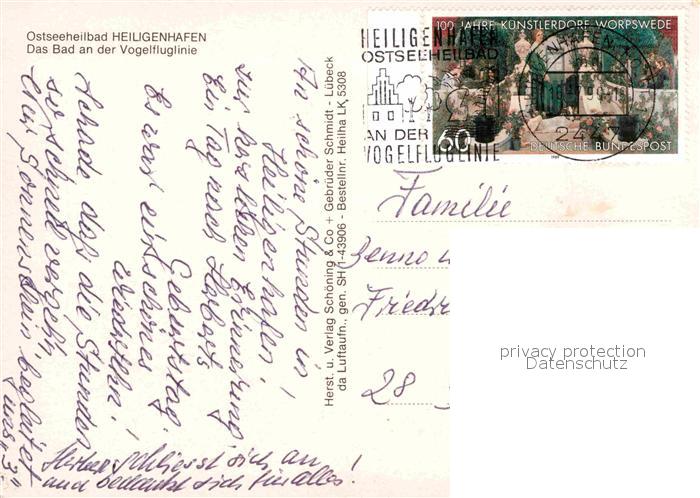 Ostseeheilbad HEILIGENHAFEN
Das Bad an der Vogelfluglinie
HEILIGENHAFEN
OSTSEEHEILBAD
AN DER
VOGELFLUGLINIE
100 JAHRE KÜNSTLERDORF WORPSWEDE
60
DEUTSCHE BUNDESPOST
An schöne Stunden in
Heiligenhafen!
zur herzlichen Erinnerung
Ein Tag nach Herberts
Geburtstag.
Es war ein schönes
Wiedersehn!
Schade daß die Stunden
so schnell vergehn
Nur Sonnenschein begleitet
uns "3"
Herbert schliesst sich an
und bedankt sich für alles!
Herst. u. Verlag Schöning & Co + Gebrüder Schmidt - Lübeck
da Luftaufn., gen. SH 1-43906 - Bestellnr. Heilha LK 5308
Familie
Benno u
Friedr
28
privacy protection
Datenschutz